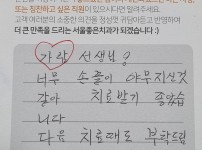 또는 칭찬하고 싶은 직원이 있으시다면 말려주세요.
고객 여러분의 소중한 의견을 정성껏 귀담아듣고 반영하여
더 큰 만족을 드리는 서울좋은치과가 되겠습니다 :)
가람 선생님?
너무 손길이 야무지신것
같아 치료받기 좋았습
니다
다음 치료때도 부탁드림